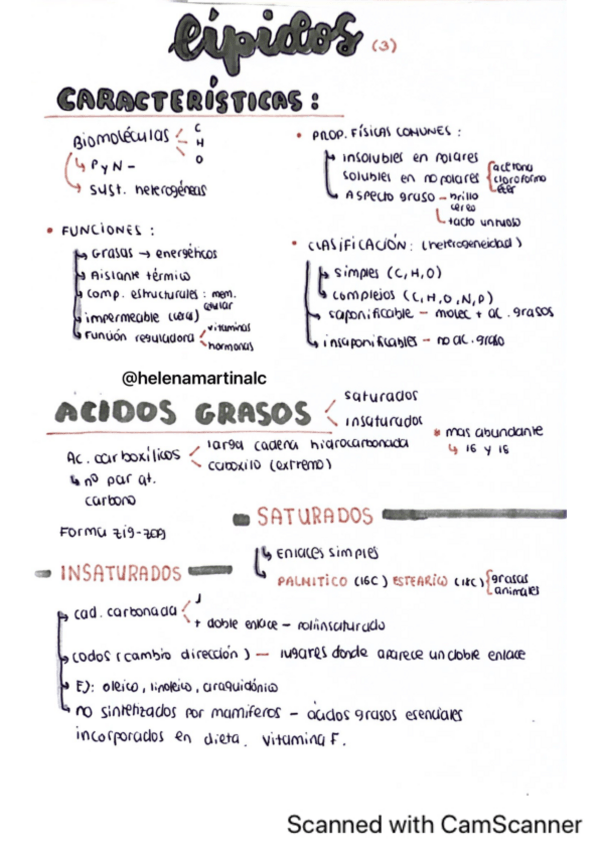 lípidos (3)
CARACTERÍSTICAS:
Biomoléculas C H O
P y N -
sust. heterogéneas
• PROP. FÍSICAS COMUNES :
insolubles en polares
solubles en no polares acetona cloroformo éter
Aspecto graso - brillo céreo
tacto untuoso
• FUNCIONES :
Grasas → energéticos
Aislante térmico
comp. estructurales : mem. celular
impermeable (cera)
Función reguladora vitaminas hormonas
• CLASIFICACIÓN: (heterogeneidad)
simples (C, H, O)
complejos (C, H, O, N, P)
saponificable - molec + ac. grasos
insaponificables - no ac. graso
@helenamartinalc
ACIDOS GRASOS saturados
insaturados
Ac. carboxílicos larga cadena hidrocarbonada
carboxilo (extremo)
nº par at.
carbono
* mas abundante
16 y 18
Forma zig-zag
SATURADOS
Enlaces simples
PALMITICO (16C) ESTEARICO (18C) grasas animales
INSATURADOS
cad. carbonada 1
+ doble enlace - poliinsaturado
codos (cambio dirección) - lugares donde aparece un doble enlace
EJ: oleico, linoleico, araquidónico
no sintetizados por mamíferos - ácidos grasos esenciales
incorporados en dieta. vitamina F.
Scanned with CamScanner